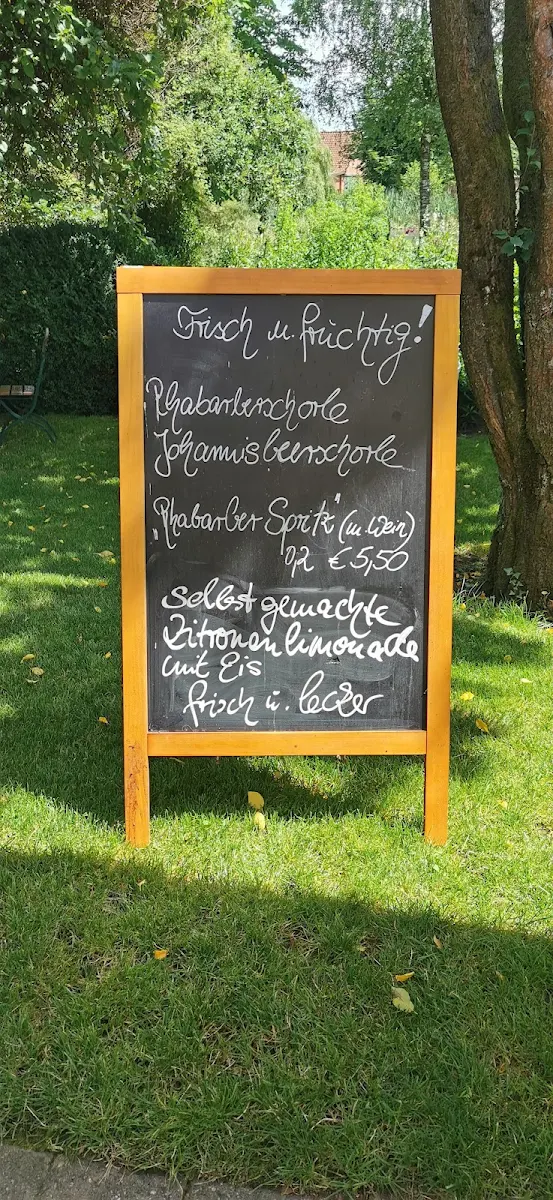 Frisch u. fruchtig!
Rhabarberschorle
Johannisbeerschorle
"Rhabarber Spritz" (m. Wein)
0,2 €5,50
selbstgemachte
Zitronenlimonade
mit Eis
frisch u. lecker